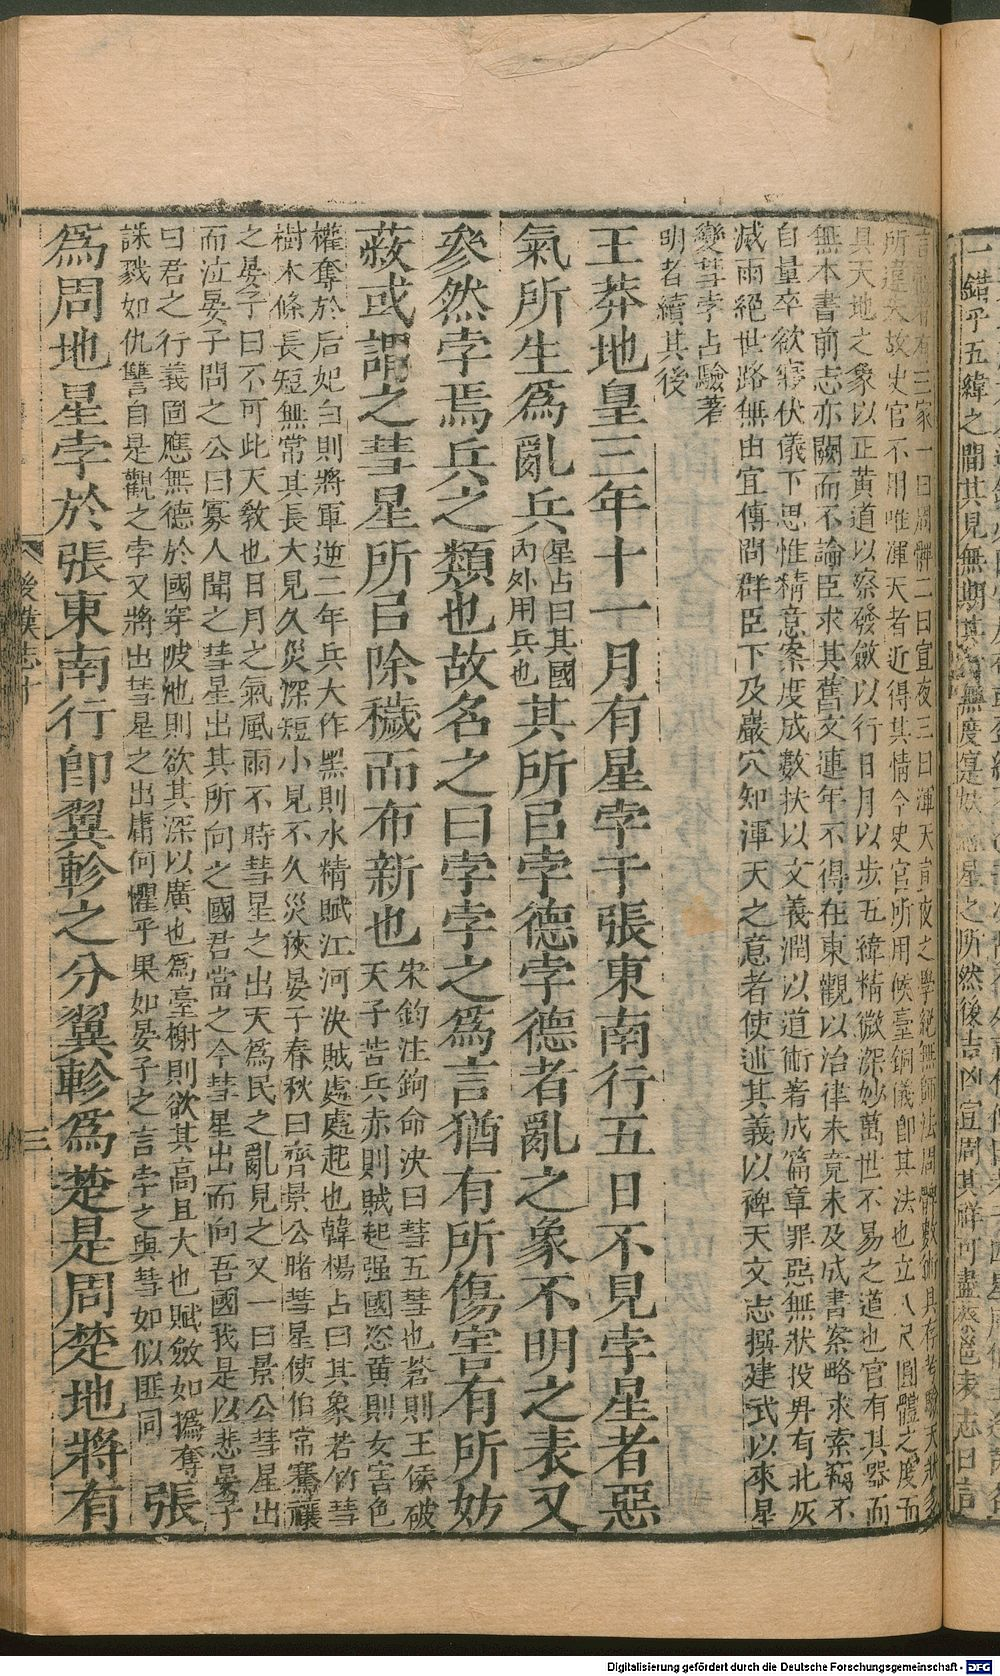 言天者有三家一曰周髀二曰宣夜三曰渾天宣夜之學絕無師法周髀數術具存考驗天狀多
所違失故史官不用唯渾天者近得其情今史官所用候臺銅儀卽其法也立八尺圓體之度而
具天地之象以正黃道以察發斂以行日月以步五緯精微深妙萬世不易之道也官有其器而
無本書前志亦闕而不論臣求其舊文連年不得在東觀以治律未竟未及成書案略求索竊不
自量卒欲寢伏儀下思惟精意案度成數扶以文義潤以道術著成篇章罪惡無狀投畀有北灰
滅雨絕世路無由宜傳問群臣下及巖穴知渾天之意者使述其義以裨天文志撰建武以來星
變彗孛占驗著
明者續其後
王莽地皇三年十一月有星孛于張東南行五日不見孛星者惡
氣所生爲亂兵星占曰其國
內外用兵也其所㠯孛德孛德者亂之象不明之表又
叅然孛焉兵之類也故名之曰孛孛之爲言猶有所傷害有所妨
蔽或謂之彗星所㠯除穢而布新也宋鈞注鉤命決曰彗五彗也蒼則王侯破
天子苦兵赤則賊起强國恣黃則女害色
權奪於后妃白則將軍逆二年兵大作黑則水精賦江河決賊處處起也韓楊占曰其象若竹彗
樹木條長短無常其長大見久災深短小見不久災狹晏子春秋曰齊景公睹彗星使伯常騫禳
之晏子曰不可此天敎也日月之氣風雨不時彗星之出天爲民之亂見之又一曰景公彗星出
而泣晏子問之公曰寡人聞之彗星出其所向之國君當之今彗星出而向吾國我是以悲晏子
曰君之行義囬應無德於國穿陂池則欲其深以廣也爲臺榭則欲其高且大也賦斂如撝奪
誅戮如仇讐自是觀之孛又將出彗星之出庸何懼乎果如晏子之言孛之與彗如似匪同
張
爲周地星孛於張東南行卽翼軫之分翼軫爲楚是周楚地將有
後漢志十
三
Digitalisierung gefördert durch die Deutsche Forschungsgemeinschaft - DFG